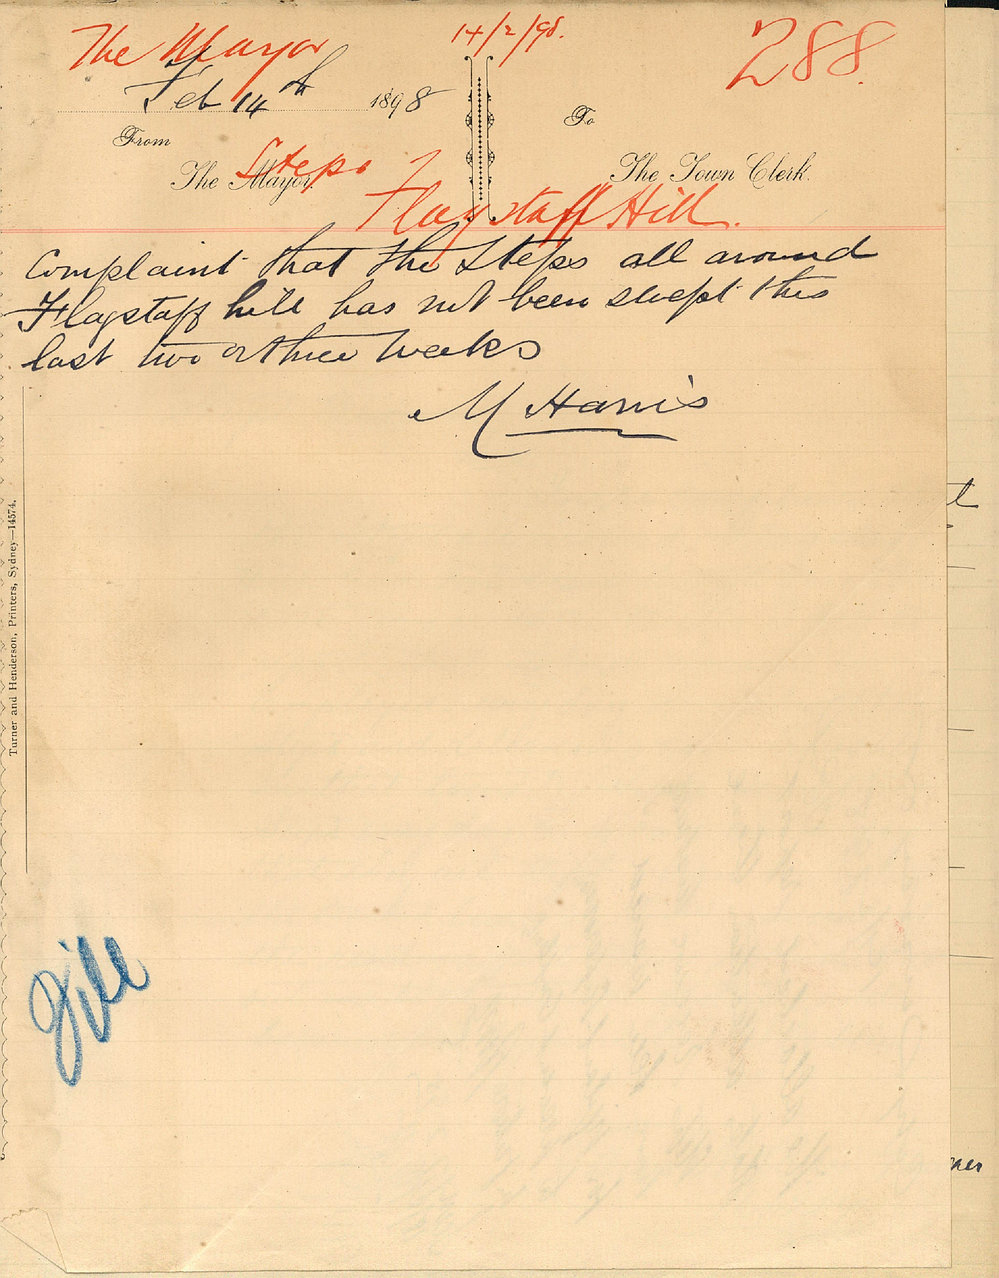 The Mayor 14/2/98. 288.
Feb 14th 1898
From To
The Mayor, The Town Clerk.
Steps Flagstaff Hill.
Complaint that the Steps all around
Flagstaff hill has not been swept this
last two or three weeks
M Harris
Turner and Henderson, Printers, Sydney—14574.